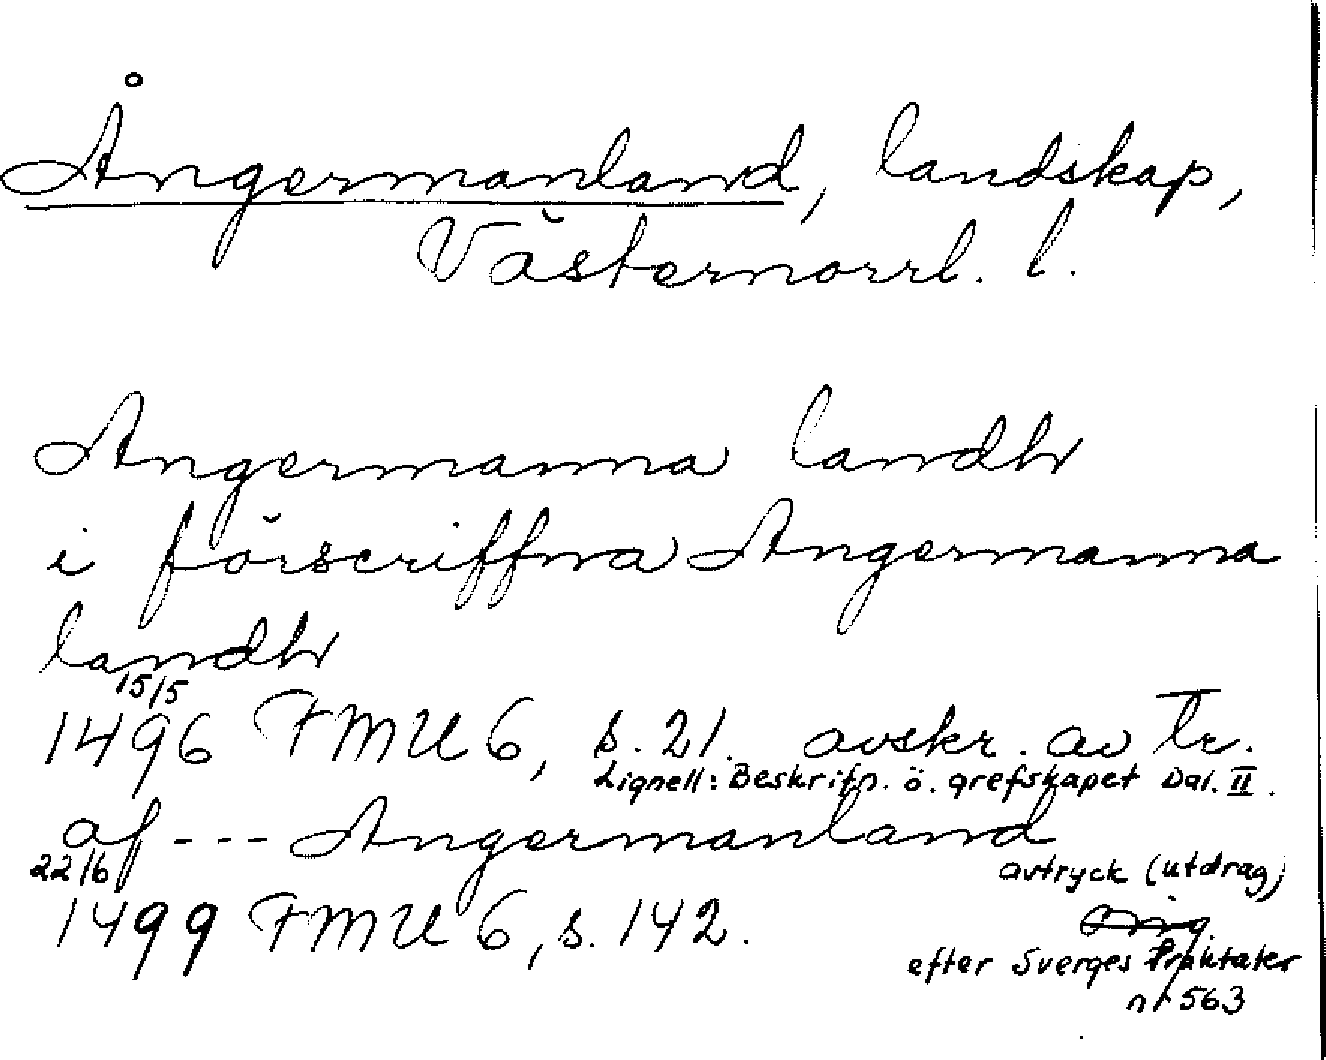 Ångermanland, landskap,
Västernorrl. l.
Angermanna landh
i förscriffna Angermanna
landh
15/5
1496 FMU 6, s. 21. avskr. av tr.
Lignell: Beskrifn. ö. grefskapet Dal. II.
af --- Angermanland
22/6
avtryck (utdrag)
1499 FMU 6, s. 142.
efter Sverges Traktater
nr 563